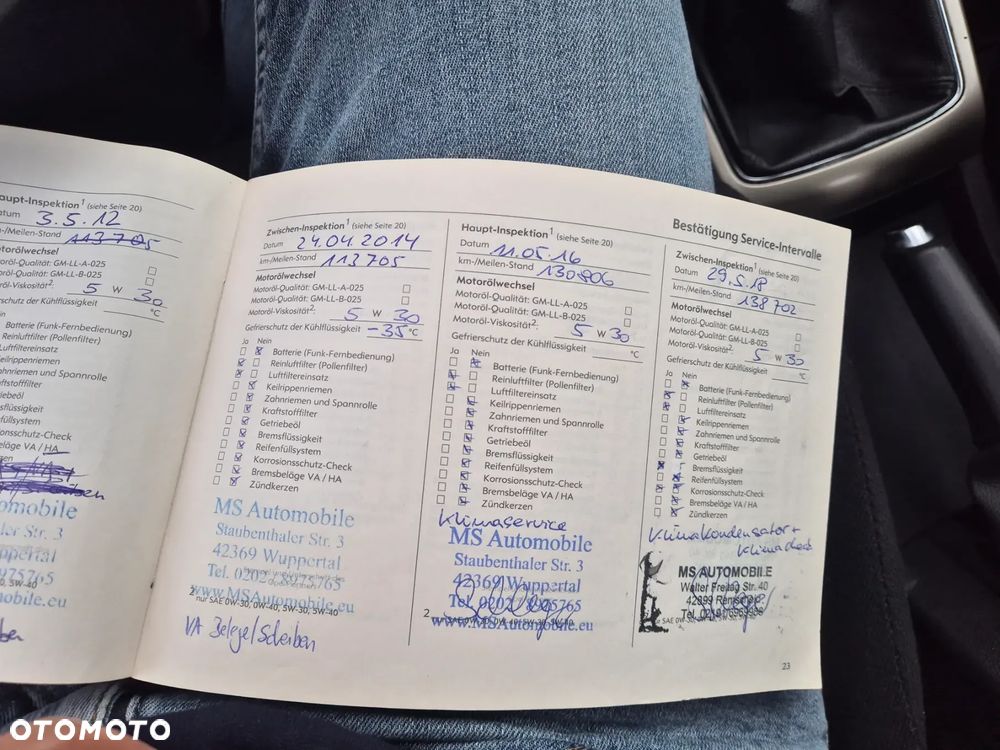 Bestätigung Service-Intervalle
Haupt-Inspektion¹ (siehe Seite 20)
Datum 3.5.12
km-/Meilen-Stand 113705
Motorölwechsel
Motoröl-Qualität: GM-LL-A-025
GM-LL-B-025
Motoröl-Viskosität²: 5 W 30
Gefrierschutz der Kühlflüssigkeit °C
Nein
Batterie (Funk-Fernbedienung)
Reinluftfilter (Pollenfilter)
Luftfiltereinsatz
Keilrippenriemen
Zahnriemen und Spannrolle
Kraftstofffilter
Getriebeöl
Bremsflüssigkeit
Reifenfüllsystem
Korrosionsschutz-Check
Bremsbeläge VA / HA
Zwischen-Inspektion¹ (siehe Seite 20)
Datum 24.04.2014
km-/Meilen-Stand 113705
Motorölwechsel
Motoröl-Qualität: GM-LL-A-025
Motoröl-Qualität: GM-LL-B-025
Motoröl-Viskosität²: 5 W 30
Gefrierschutz der Kühlflüssigkeit -35 °C
Ja Nein
Batterie (Funk-Fernbedienung)
Reinluftfilter (Pollenfilter)
Luftfiltereinsatz
Keilrippenriemen
Zahnriemen und Spannrolle
Kraftstofffilter
Getriebeöl
Bremsflüssigkeit
Reifenfüllsystem
Korrosionsschutz-Check
Bremsbeläge VA / HA
Zündkerzen
MS Automobile
Staubenthaler Str. 3
42369 Wuppertal
Tel. 0202 / 8975765
www.MSAutomobile.eu
² nur SAE 0W-30, 0W-40, 5W-30, 5W-40
VA Beläge/Scheiben
Haupt-Inspektion¹ (siehe Seite 20)
Datum 11.05.16
km-/Meilen-Stand 130806
Motorölwechsel
Motoröl-Qualität: GM-LL-A-025
Motoröl-Qualität: GM-LL-B-025
Motoröl-Viskosität²: 5 W 30
Gefrierschutz der Kühlflüssigkeit °C
Ja Nein
Batterie (Funk-Fernbedienung)
Reinluftfilter (Pollenfilter)
Luftfiltereinsatz
Keilrippenriemen
Zahnriemen und Spannrolle
Kraftstofffilter
Getriebeöl
Bremsflüssigkeit
Reifenfüllsystem
Korrosionsschutz-Check
Bremsbeläge VA / HA
Zündkerzen
Klimaservice
MS Automobile
Staubenthaler Str. 3
42369 Wuppertal
Tel. 0202 / 8975765
www.MSAutomobile.eu
Zwischen-Inspektion¹ (siehe Seite 20)
Datum 29.5.18
km-/Meilen-Stand 138702
Motorölwechsel
Motoröl-Qualität: GM-LL-A-025
Motoröl-Qualität: GM-LL-B-025
Motoröl-Viskosität²: 5 W 30
Gefrierschutz der Kühlflüssigkeit °C
Ja Nein
Batterie (Funk-Fernbedienung)
Reinluftfilter (Pollenfilter)
Luftfiltereinsatz
Keilrippenriemen
Zahnriemen und Spannrolle
Kraftstofffilter
Getriebeöl
Bremsflüssigkeit
Reifenfüllsystem
Korrosionsschutz-Check
Bremsbeläge VA / HA
Zündkerzen
Klimakondensator +
Klimacheck
MS AUTOMOBILE
Walter Freitag Str. 40
42899 Remscheid
23
OTOMOTO